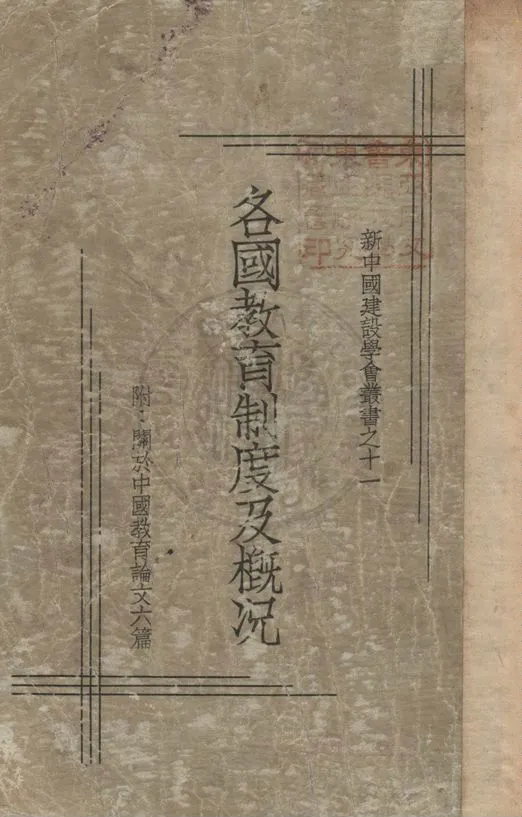 新中國建設學會叢書之十一
各國教育制度及概況
附：關於中國教育論文六篇